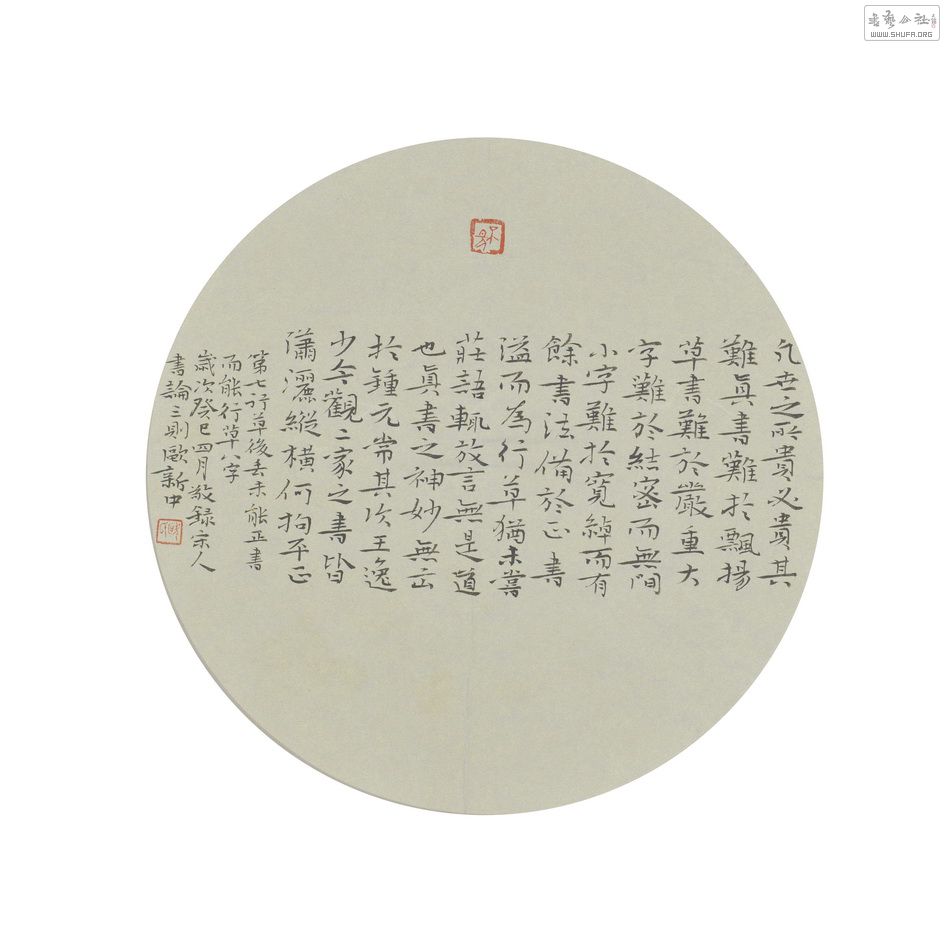 凡世之所貴必貴其
難眞書難於飄揚
草書難於嚴重大
字難於結密而無間
小字難於寬綽而有
餘書法備於正書
溢而為行草猶未嘗
莊語輒放言無是道
也眞書之神妙無出
於鍾元常其次王逸
少今觀二家之書皆
瀟灑縱橫何拘平正
第七行草後丟未能正書
而能行草八字
歲次癸巳四月敬録宋人
書論三則歐新中
書藝公社
WWW.SHUFA.ORG